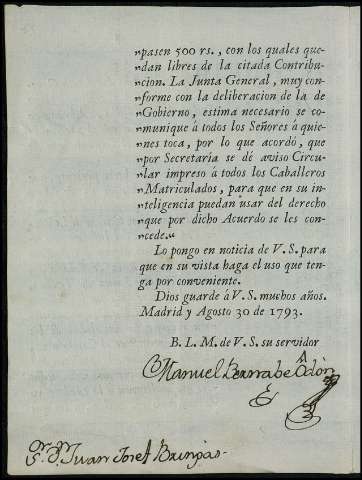 „pasen 500 rs., con los quales que-
„dan libres de la citada Contribu-
„cion. La Junta General, muy con-
„forme con la deliberacion de la de
„Gobierno, estima necesario se co-
„munique á todos los Señores á quie-
„nes toca, por lo que acordó, que
„por Secretaría se dé aviso Circu-
„lar impreso á todos los Caballeros
„Matriculados, para que en su in-
„teligencia puedan usar del derecho
„que por dicho Acuerdo se les con-
„cede.“
Lo pongo en noticia de V. S. para
que en su vista haga el uso que ten-
ga por conveniente.
Dios guarde á V. S. muchos años.
Madrid y Agosto 30 de 1793.
B. L. M. de V. S. su servidor
Manuel Bernabe Odón
Juan Josef Bringas.